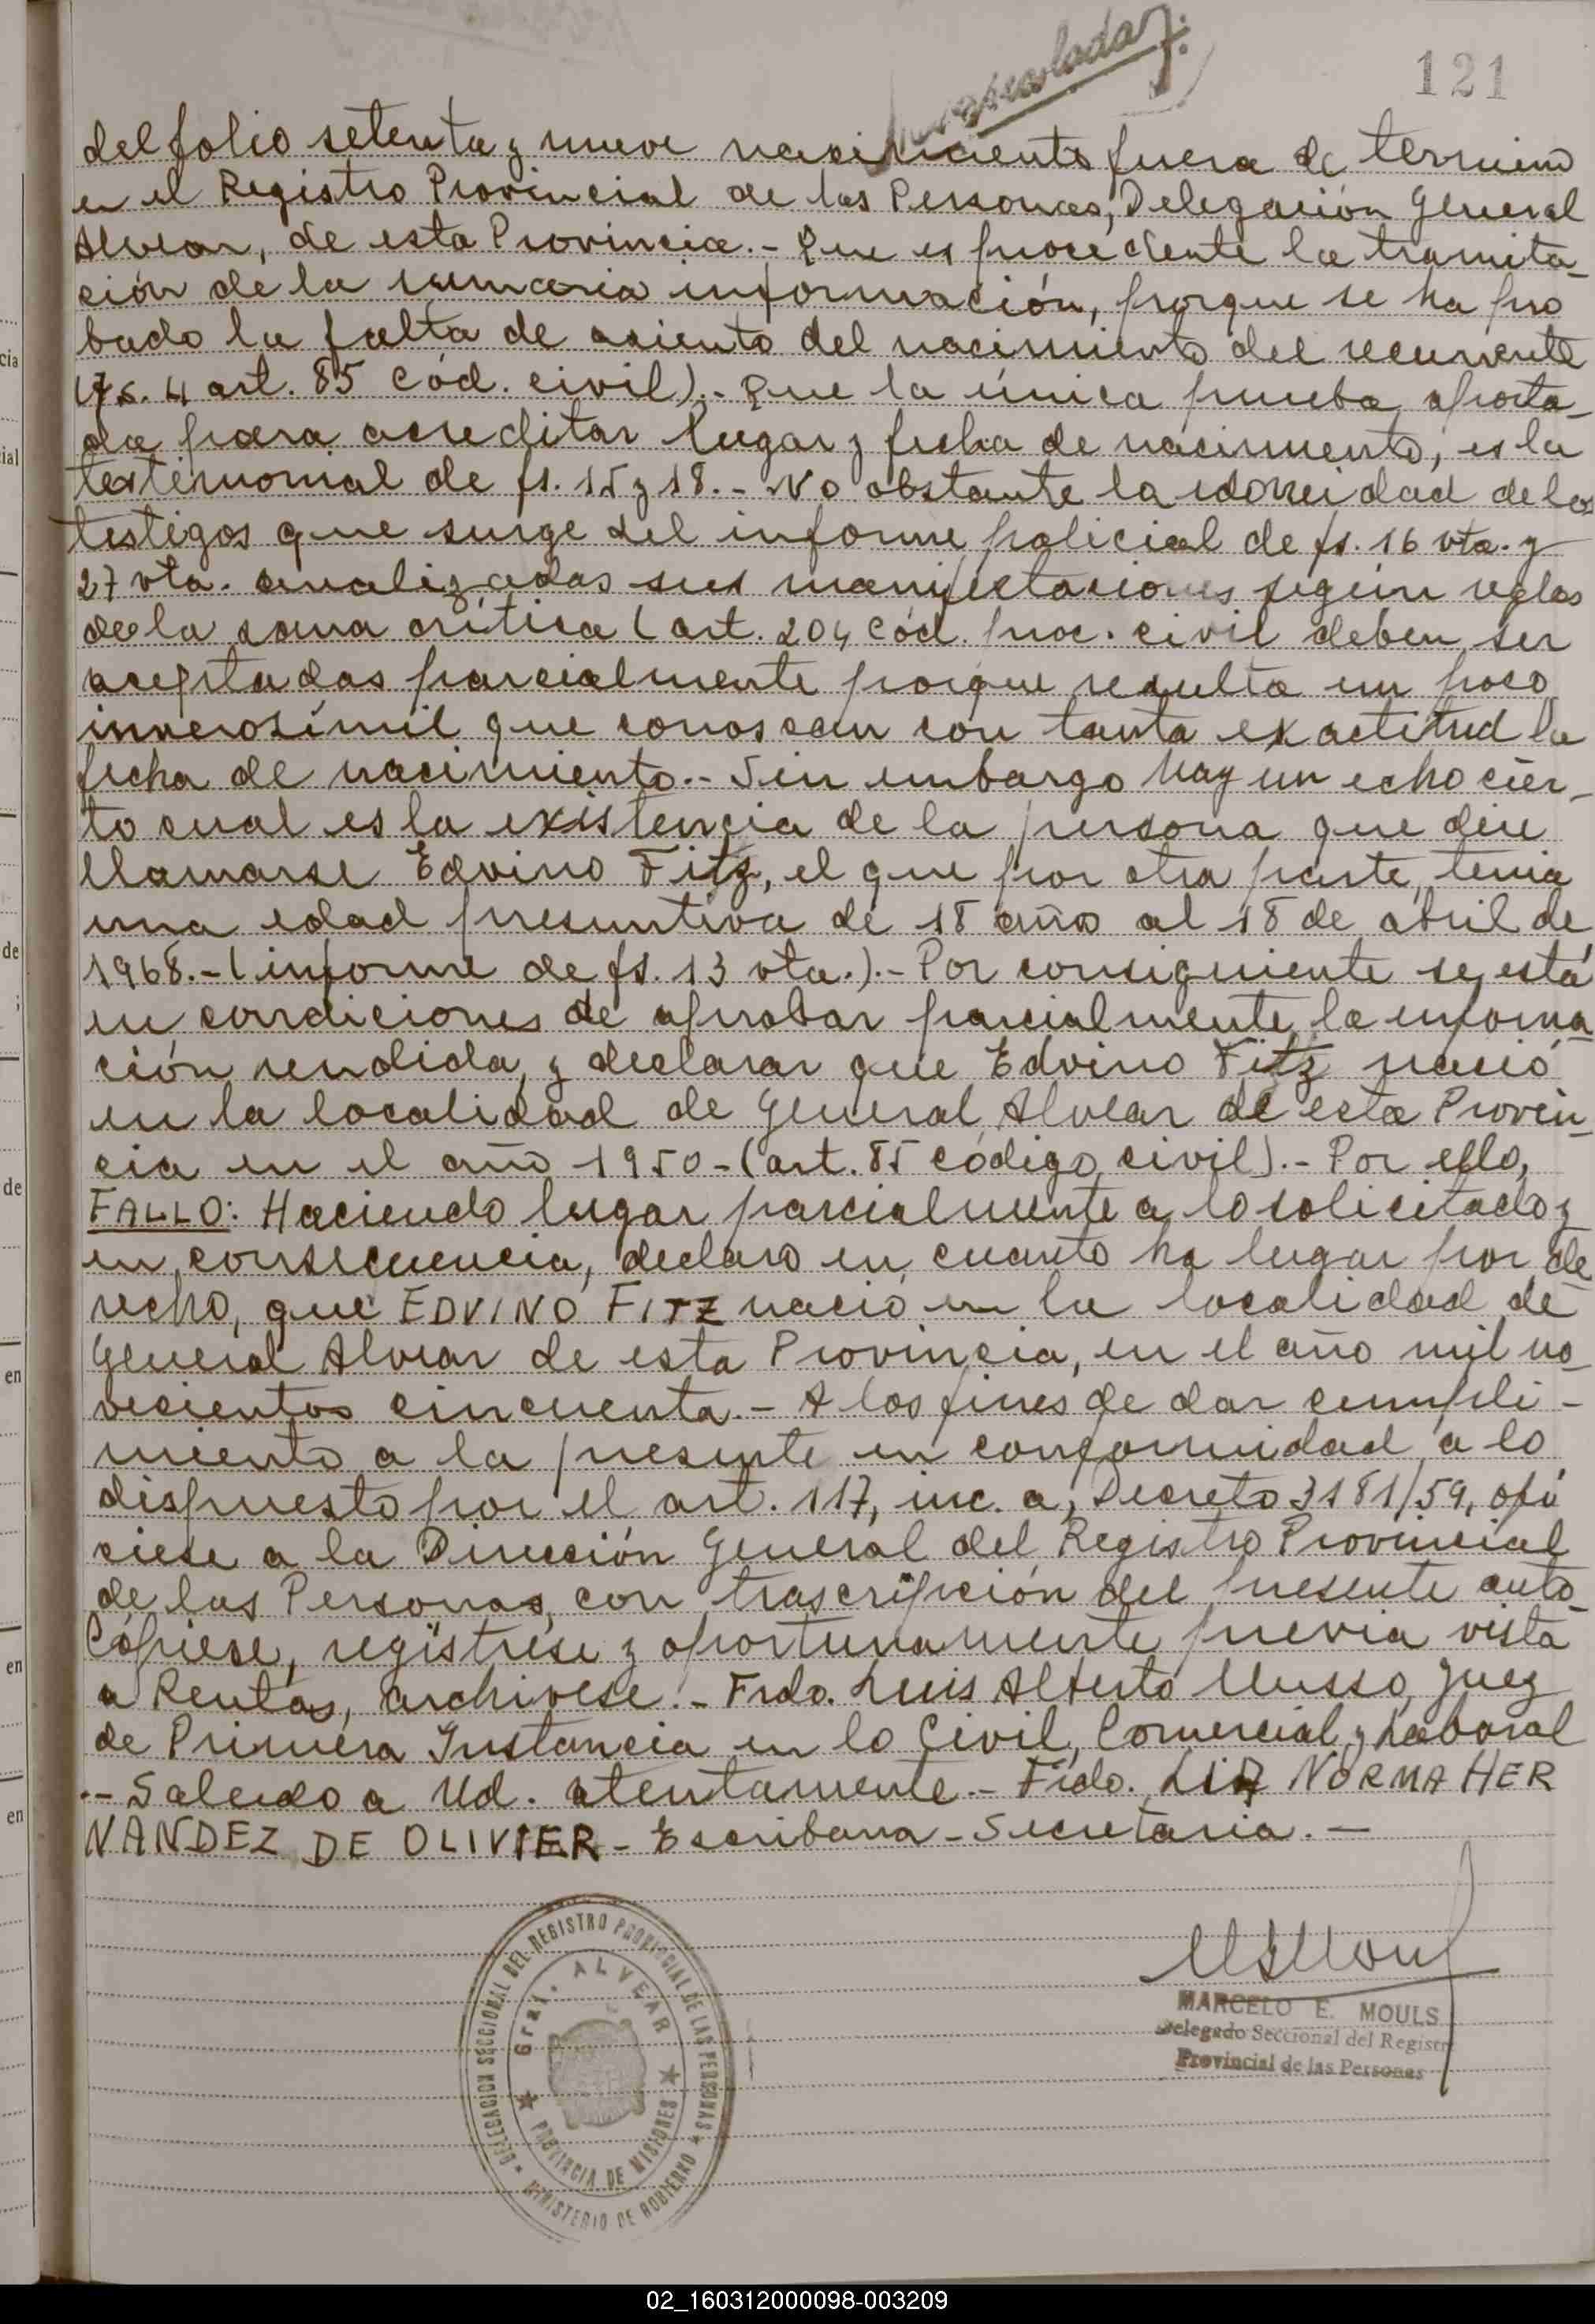 121
del folio setenta y nueve nacimiento fuera de termino
en el Registro Provincial de las Personas, Delegación General
Alvear, de esta Provincia.- Que es procedente la tramita-
ción de la sumaria información, porque se ha pro
bado la falta de asiento del nacimiento del recurrente
(fs. 4 art. 85 Cód. civil).- Que la única prueba aporta-
da para acreditar lugar y fecha de nacimiento, es la
testimonial de fs. 15 y 18.- No obstante la idoneidad de los
testigos que surge del informe policial de fs. 16 vta. y
27 vta. analizadas sus manifestaciones según reglas
de la sana crítica (art. 204 Cód. proc. civil deben ser
aceptadas parcialmente porque resulta un poco
inverosímil que conoscan con tanta exactitud la
fecha de nacimiento.- Sin embargo hay un echo cier-
to cual es la existencia de la persona que dice
llamarse Edvino Fitz, el que por otra parte, tenia
una edad presuntiva de 18 años al 18 de abril de
1968.- (informe de fs. 13 vta.).- Por consiguiente se está
en condiciones de aprobar parcialmente la informa
ción rendida, y declarar que Edvino Fitz nació
en la localidad de General Alvear de esta Provin-
cia en el año 1950-(art. 85 código civil).- Por ello,
FALLO: Haciendo lugar parcialmente a lo solicitado y
en consecuencia, declaro en cuanto ha lugar por de
recho, que EDVINO FITZ nacio en la localidad de
General Alvear de esta Provincia, en el año mil no-
vecientos cincuenta.- A los fines de dar cumpli-
miento a la presente en conformidad a lo
dispuesto por el art. 117, inc. a, Decreto 3181/59, ofi
ciese a la Dirección General del Registro Provincial
de las Personas, con trascripción del presente auto-
Cópiese, regístrese y oportunamente previa vista
a Rentas, archivese.- Frdo. Luis Alberto Musso, Juez
de Primera Instancia en lo Civil, Comercial y Laboral
.- Saludo a Ud. atentamente.- Frdo. LIA NORMA HER
NANDEZ DE OLIVIER - Escribana - Secretaria.-
DELEGACION SECCIONAL DEL REGISTRO PROVINCIAL DE LAS PERSONAS
MINISTERIO DE GOBIERNO
Gral. ALVEAR
PROVINCIA DE MISIONES
MARCELO E. MOULS
Delegado Seccional del Registro
Provincial de las Personas
02_160312000098-003209